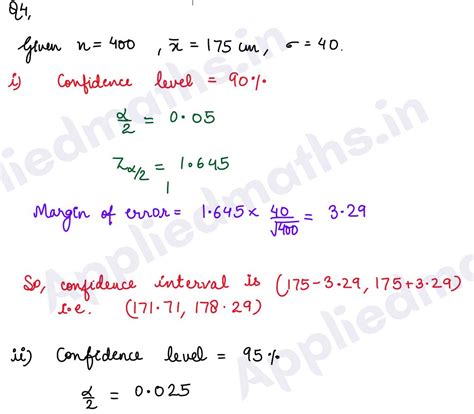 Q4,
Given n = 400 , x̄ = 175 cm, σ = 40.
i) Confidence level = 90%
α/2 = 0.05
Zα/2 = 1.645
Margin of error = 1.645 × 40/√400 = 3.29
So, confidence interval is (175-3.29, 175+3.29)
i.e. (171.71, 178.29)
ii) Confidence level = 95%
α/2 = 0.025
Appliedmaths.in
Appliedmaths.in